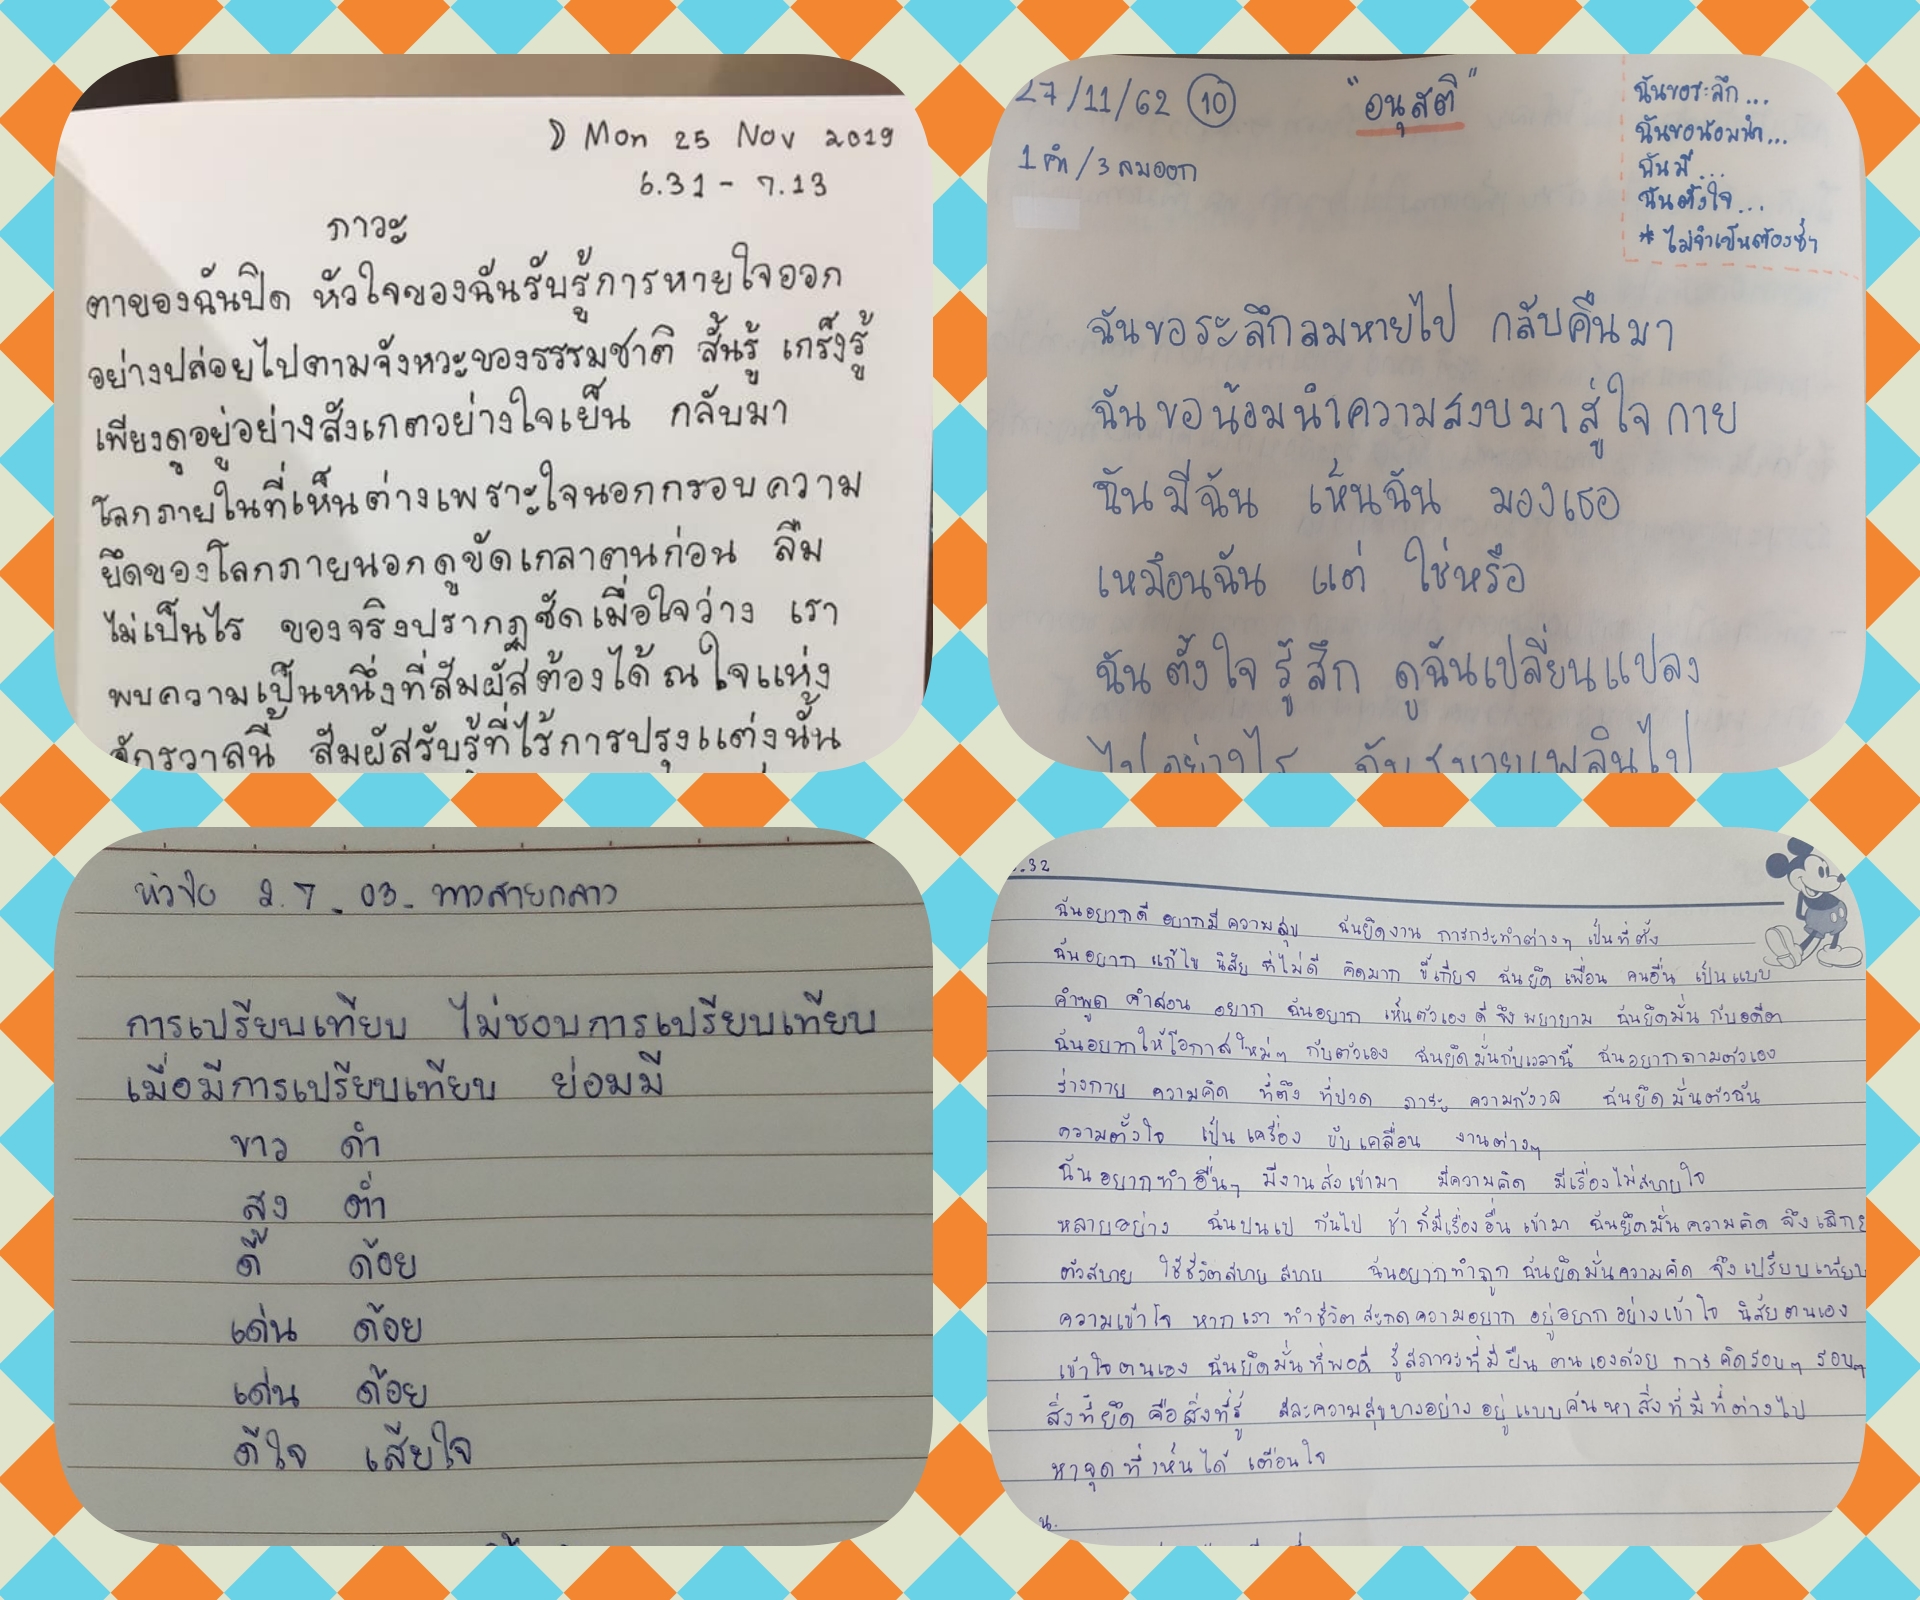 D Mon 25 Nov 2019
6.31 - 7.13
ภาวะ
ตาของฉันปิด หัวใจของฉันรับรู้การหายใจออก
อย่างปล่อยไปตามจังหวะของธรรมชาติ สั้นรู้ เกร็งรู้
เพียงดูอยู่อย่างสังเกตอย่างใจเย็น กลับมา
โลกภายในที่เห็นต่างเพราะใจนอกกรอบความ
ยึดของโลกภายนอกดูขัดเกลาตนก่อน ลืม
ไม่เป็นไร ของจริงปรากฏชัดเมื่อใจว่าง เรา
พบความเป็นหนึ่งที่สัมผัสต้องได้ ณ ใจแห่ง
จักรวาลนี้ สัมผัสรับรู้ที่ไร้การปรุงแต่งนั้น
27/11/62 10 "อนุสติ"
1 คำ/3 ลมออก
ฉันขอระลึก...
ฉันขอน้อมนำ...
ฉันมี...
ฉันตั้งใจ...
* ไม่จำเป็นต้องซ้ำ
ฉันขอระลึกลมหายไป กลับคืนมา
ฉันขอน้อมนำความสงบมาสู่ใจกาย
ฉันมีฉัน เห็นฉัน มองเธอ
เหมือนฉัน แต่ ใช่หรือ
ฉันตั้งใจรู้สึก ดูฉันเปลี่ยนแปลง
ไปอย่างไร ฉันสบายเพลินไป
หัวใจ 2.7 - 03 - ทางสายกลาง
การเปรียบเทียบ ไม่ชอบการเปรียบเทียบ
เมื่อมีการเปรียบเทียบ ย่อมมี
ขาว ดำ
สูง ต่ำ
ดี ด้อย
เด่น ด้อย
เด่น ด้อย
ดีใจ เสียใจ
.32
ฉันอยากดี อยากมีความสุข ฉันยึดงาน การกระทำต่างๆ เป็นที่ตั้ง
ฉันอยาก แก้ไข นิสัย ที่ไม่ดี คิดมาก ขี้เกียจ ฉันยึด เพื่อน คนอื่น เป็นแบบ
คำพูด คำสอน อยาก ฉันอยาก เห็นตัวเองดี จึงพยายาม ฉันยึดมั่น กับอดีต
ฉันอยากให้โอกาสใหม่ๆ กับตัวเอง ฉันยึดมั่นกับเวลานี้ ฉันอยากถามตัวเอง
ร่างกาย ความคิด ที่ตึง ที่ปวด ภาระ ความกังวล ฉันยึดมั่นตัวฉัน
ความตั้งใจ เป็นเครื่อง ขับเคลื่อน งานต่างๆ
ฉันอยากทำอื่นๆ มีงานสั่งเข้ามา มีความคิด มีเรื่องไม่สบายใจ
หลายอย่าง ฉันปนเป กันไป ช้า ก็มีเรื่องอื่น เข้ามา ฉันยึดมั่นความคิด จึง
ตัวสบาย ใช้ชีวิตสบาย สบาย ฉันอยากทำถูก ฉันยึดมั่นความคิด จึงเปรียบเทียบ
ความเข้าใจ หากเรา ทำชีวิต สะกดความอยาก อยู่อยากอย่างเข้าใจ นิสัยตนเอง
เข้าใจตนเอง ฉันยึดมั่นที่พอดี รู้สภาวะที่มี ยืน ตนเองด้วย การคิดรอบๆ รอบๆ
สิ่งที่ยึด คือสิ่งที่รู้ สละความสุขบางอย่าง อยู่แบบค้นหาสิ่งที่มีที่ต่างไป
หาจุดที่เห็นได้ เตือนใจ
น.